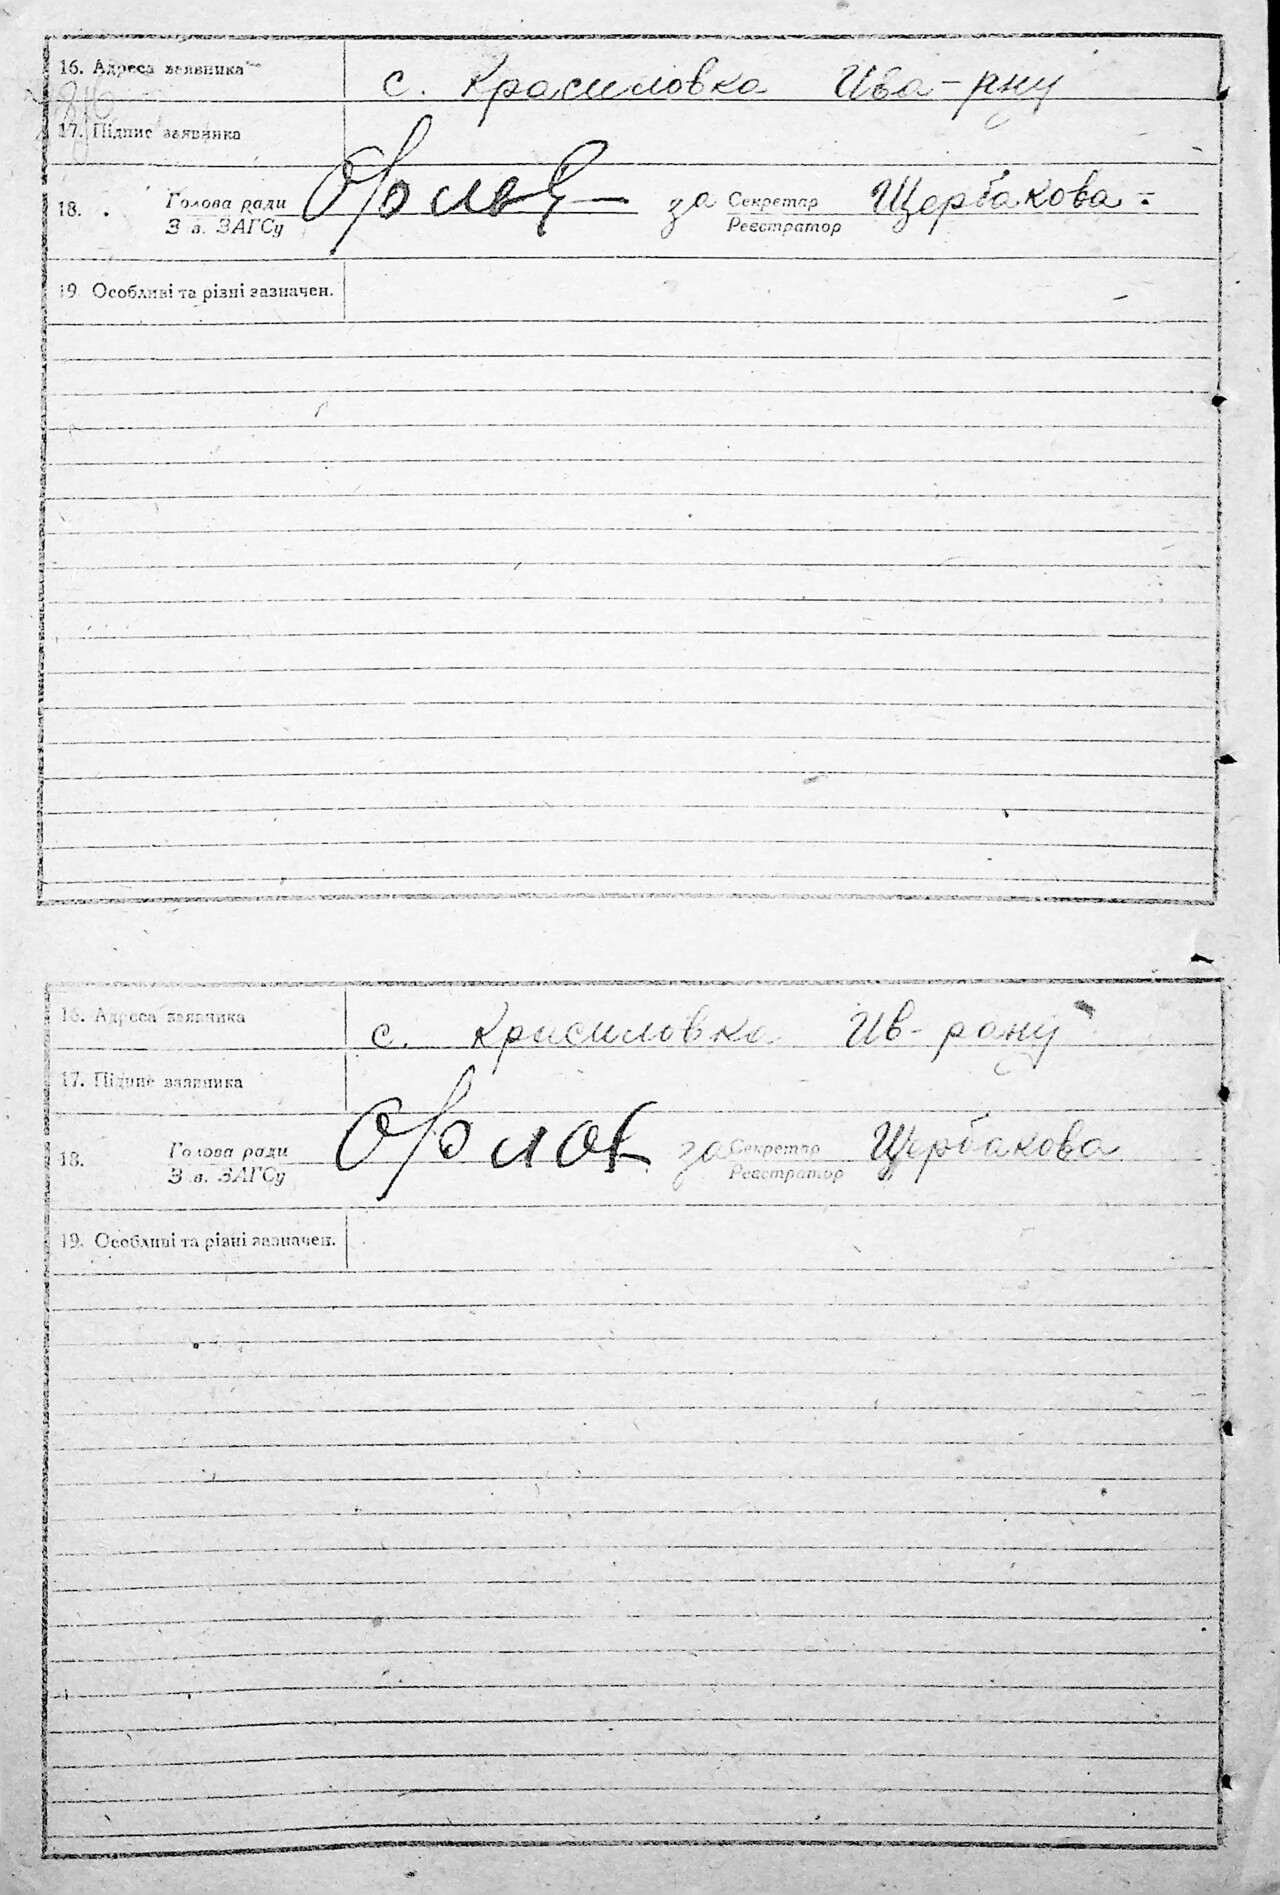 16. Адреса заявника с. Красиловка Ива-рну
17. Підпис заявника
18. Голова ради за Секретар Щербакова
З в. ЗАГСу Реєстратор
19. Особливі та різні зазначен.
16. Адреса заявника с. Красиловка Ив-рану
17. Підпис заявника
18. Голова ради за Секретар Щербакова
З в. ЗАГСу Реєстратор
19. Особливі та різні зазначен.